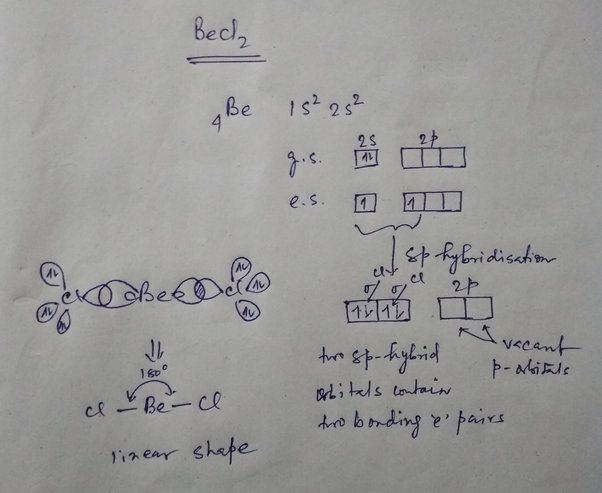 BeCl2
4Be 1s² 2s²
2s 2p
g.s. 1⇂
e.s. 1 1
sp-hybridisation
Cl Cl
σ σ 2p
1⇂ 1⇂
vacant
p-orbitals
two sp-hybrid
orbitals contain
two bonding 'e' pairs
1⇂ 1⇂
Cl Be Cl 1⇂
1⇂ 1⇂ 1⇂
180°
Cl – Be – Cl
linear shape